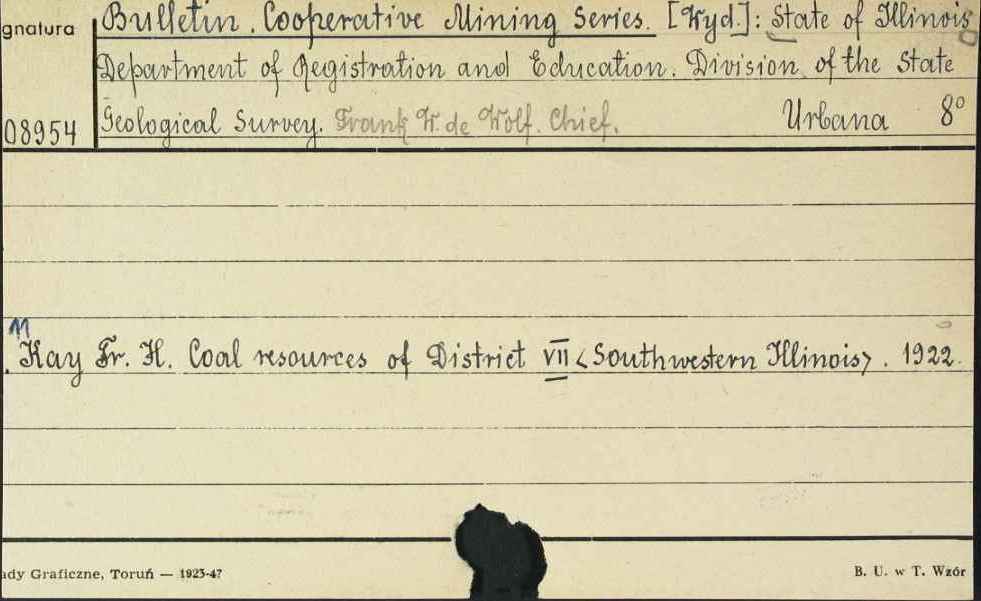 gnatura
Bulletin. Cooperative Mining Series. [Wyd.]: State of Illinois
Department of Registration and Education. Division of the State
08954 Geological Survey. Frank W. de Wolf. Chief. Urbana 8°
11
. Kay Fr. H. Coal resources of District VII <Southwestern Illinois>. 1922.
ady Graficzne, Toruń — 1923-47 B. U. w T. Wzór